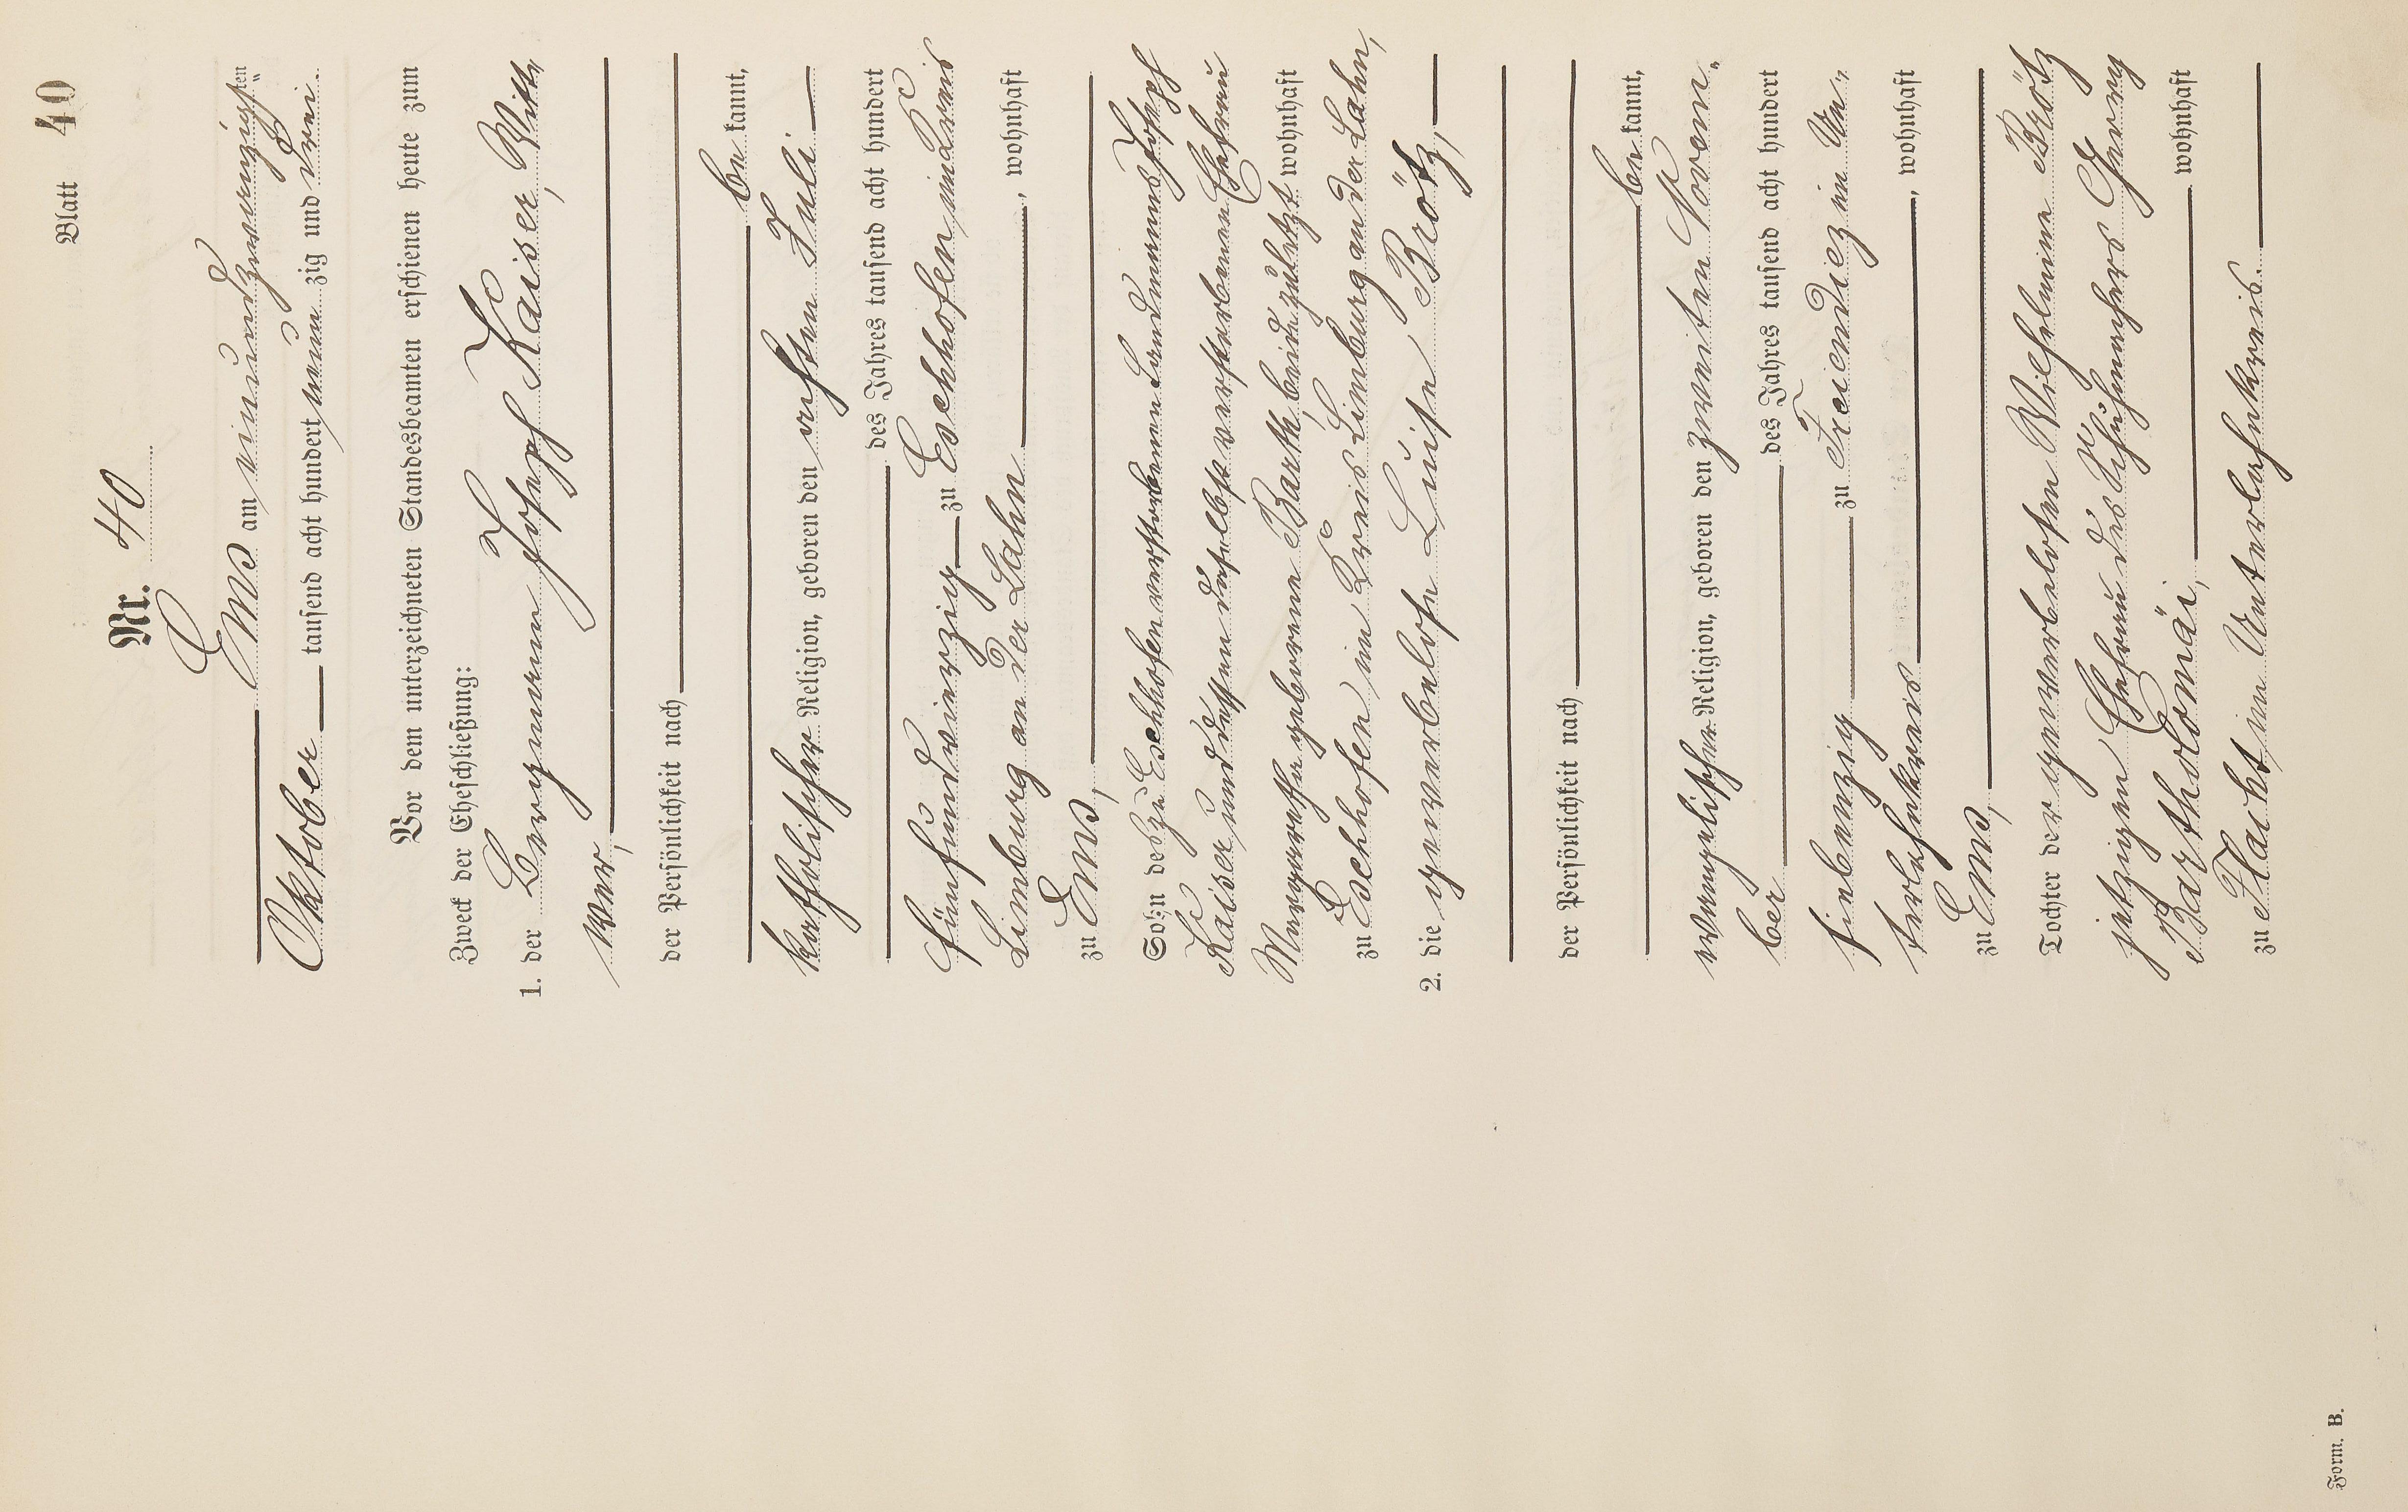 Blatt 40
Nr. 40
Ems am einundzwanzigsten
Oktober tausend acht hundert neunzig und drei.
Vor dem unterzeichneten Standesbeamten erschienen heute zum
Zweck der Eheschließung:
1. der Bergmann Joseph Kaiser, Witt„
wer,
der Persönlichkeit nach
be kannt,
katholischer Religion, geboren den ersten Juli
des Jahres tausend acht hundert
fünfundvierzig zu Eschhofen, im Kreis
Limburg an der Lahn, wohnhaft
zu Ems,
Sohn des zu Eschhofen verstorbenen Landmanns Joseph
Kaiser, und dessen daselbst verstorbenen Ehefrau
Margaretha geborene Barth, beide zuletzt wohnhaft
zu Eschhofen, im Kreis Limburg an der Lahn,
2. die gewerbelose Luise Brötz,
der Persönlichkeit nach
be kannt,
evangelischer Religion, geboren den zweiten Novem„
ber des Jahres tausend acht hundert
siebenzig zu Freiendiez im Un„
terlahnkreis, wohnhaft
zu Ems,
Tochter der gewerbelosen Wilhelmine Brötz
jetzigen Ehefrau des Georg
Bartholomäi, wohnhaft
zu Flacht, im Unterlahnkreis.
Form. B.